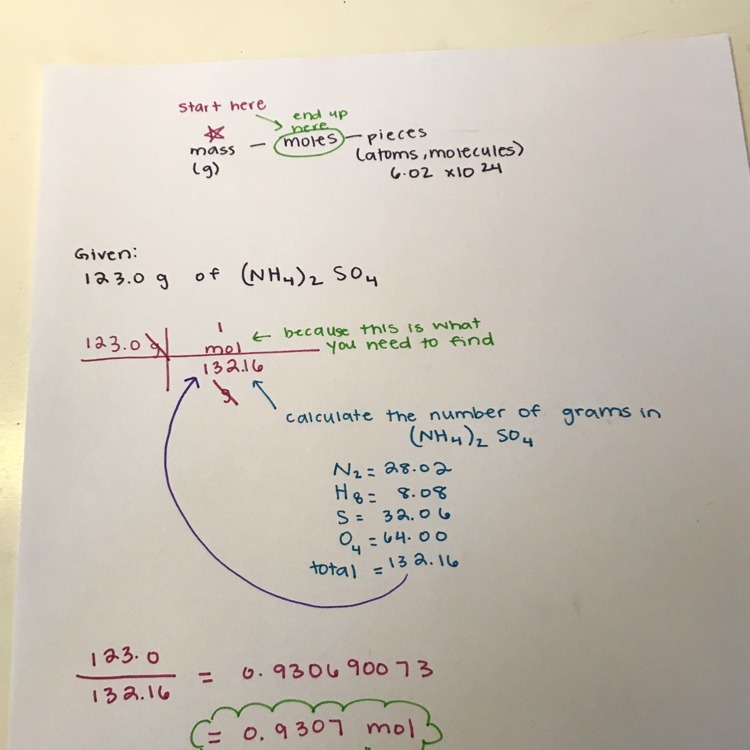 start here
end up
here
mass — moles — pieces
(g)
(atoms, molecules)
6.02 x10 24
Given:
123.0 g of (NH4)2 SO4
1
123.0 g mol ← because this is what
you need to find
132.16
g
calculate the number of grams in
(NH4)2 SO4
N2 = 28.02
H8 = 8.08
S = 32.06
O4 = 64.00
total = 132.16
123.0
132.16
= 0.930690073
= 0.9307 mol